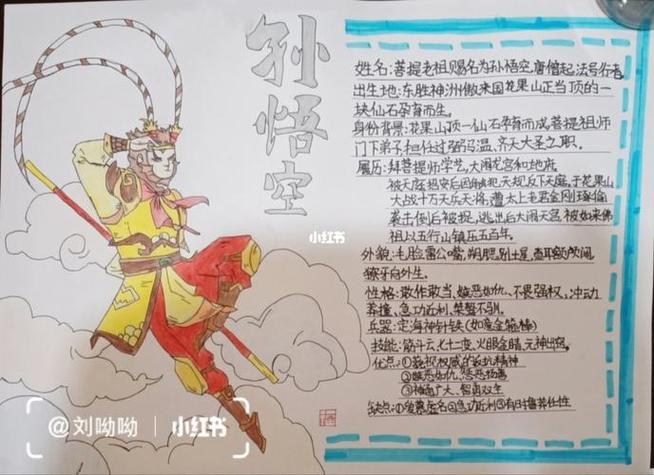 孙悟空
姓名:菩提老祖赐名为孙悟空,唐僧起法号行者
出生地:东胜神洲傲来国花果山正当顶的一
块仙石孕育而生。
身份背景:花果山顶一仙石孕育而成,菩提祖师
门下弟子,担任过弼马温、齐天大圣之职。
履历:拜菩提师学艺,大闹龙宫和地府。
被天庭招安后因触犯天规反下天庭,于花果山
大战十万天兵天将,遭太上老君金刚琢偷
袭击倒后被捉,逃出后大闹天宫,被如来佛
祖以五行山镇压五百年。
外貌:毛脸雷公嘴,朔腮别土星,查耳额颅阔,
獠牙向外生。
性格:敢作敢当、嫉恶如仇、不畏强权、冲动
莽撞、急功近利、桀骜不驯。
兵器:定海神针铁(如意金箍棒)
技能:筋斗云,七十二变,火眼金睛,元神出窍。
优点:①藐视权威的反抗精神
②嫉恶如仇、惩恶扬善
③神通广大、智勇双全
缺点:①爱慕虚名②急功近利③有时鲁莽任性
小红书
@刘呦呦 | 小红书